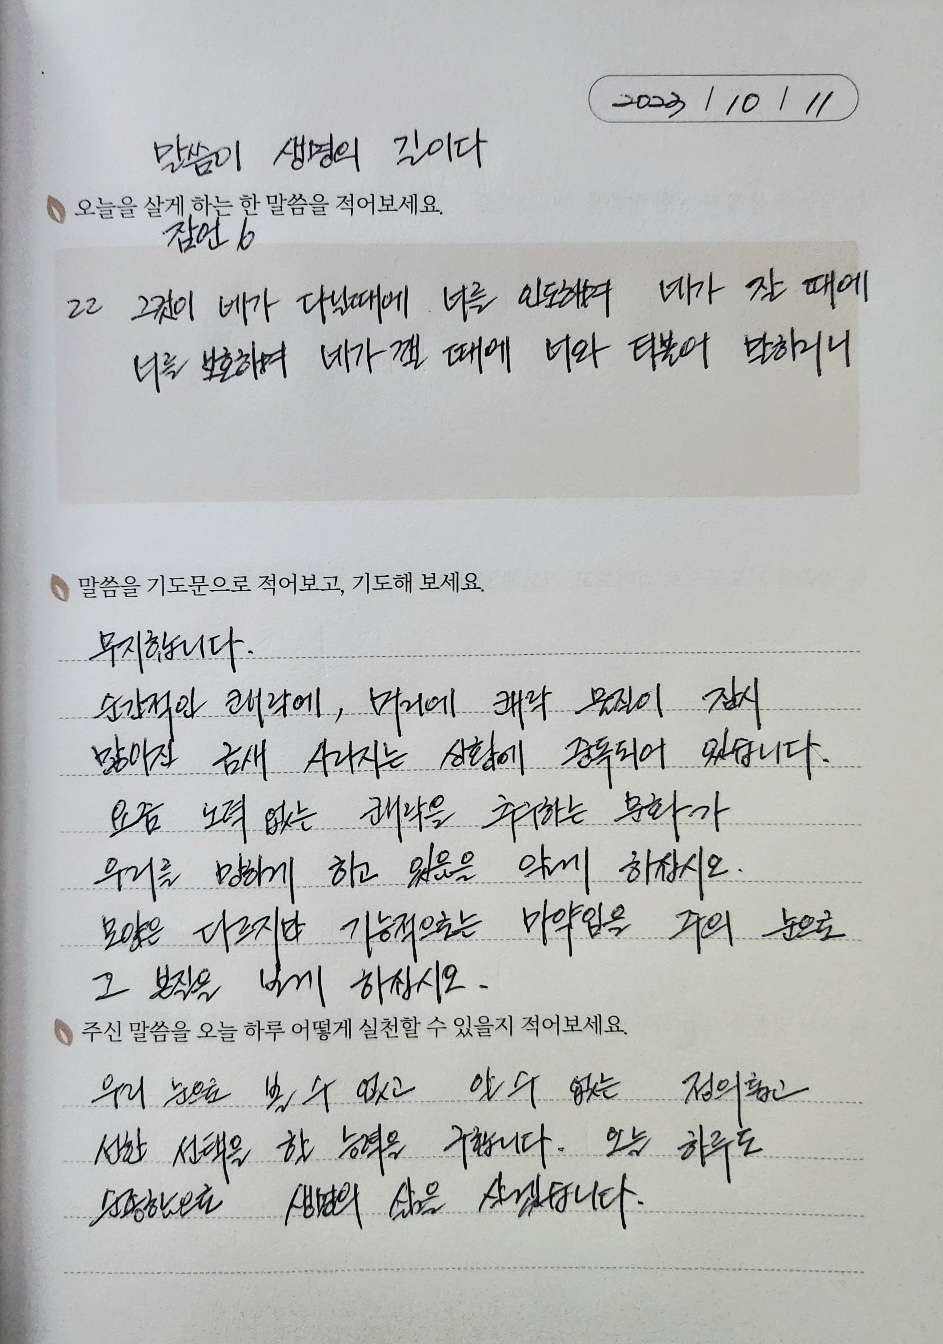 2023 / 10 / 11
말씀이 생명의 길이다
오늘을 살게 하는 한 말씀을 적어보세요.
잠언 6
22 그것이 네가 다닐때에 너를 인도하며 네가 잘 때에
너를 보호하며 네가 깰 때에 너와 더불어 말하리니
말씀을 기도문으로 적어보고, 기도해 보세요.
무지합니다.
순간적인 쾌락에, 머리에 쾌락 물질이 잠시
많아진 금새 사라지는 상황에 중독되어 있습니다.
요즘 노력 없는 쾌락을 추구하는 문화가
우리를 망하게 하고 있음을 알게 하십시오.
모양은 다르지만 기능적으로는 마약임을 주의 눈으로
그 본질을 보게 하십시오.
주신 말씀을 오늘 하루 어떻게 실천할 수 있을지 적어보세요.
우리 눈으로 볼 수 없고 알 수 없는 정의롭고
선한 선택을 할 능력을 구합니다. 오늘 하루도
순종함으로 생명의 삶을 살겠습니다.